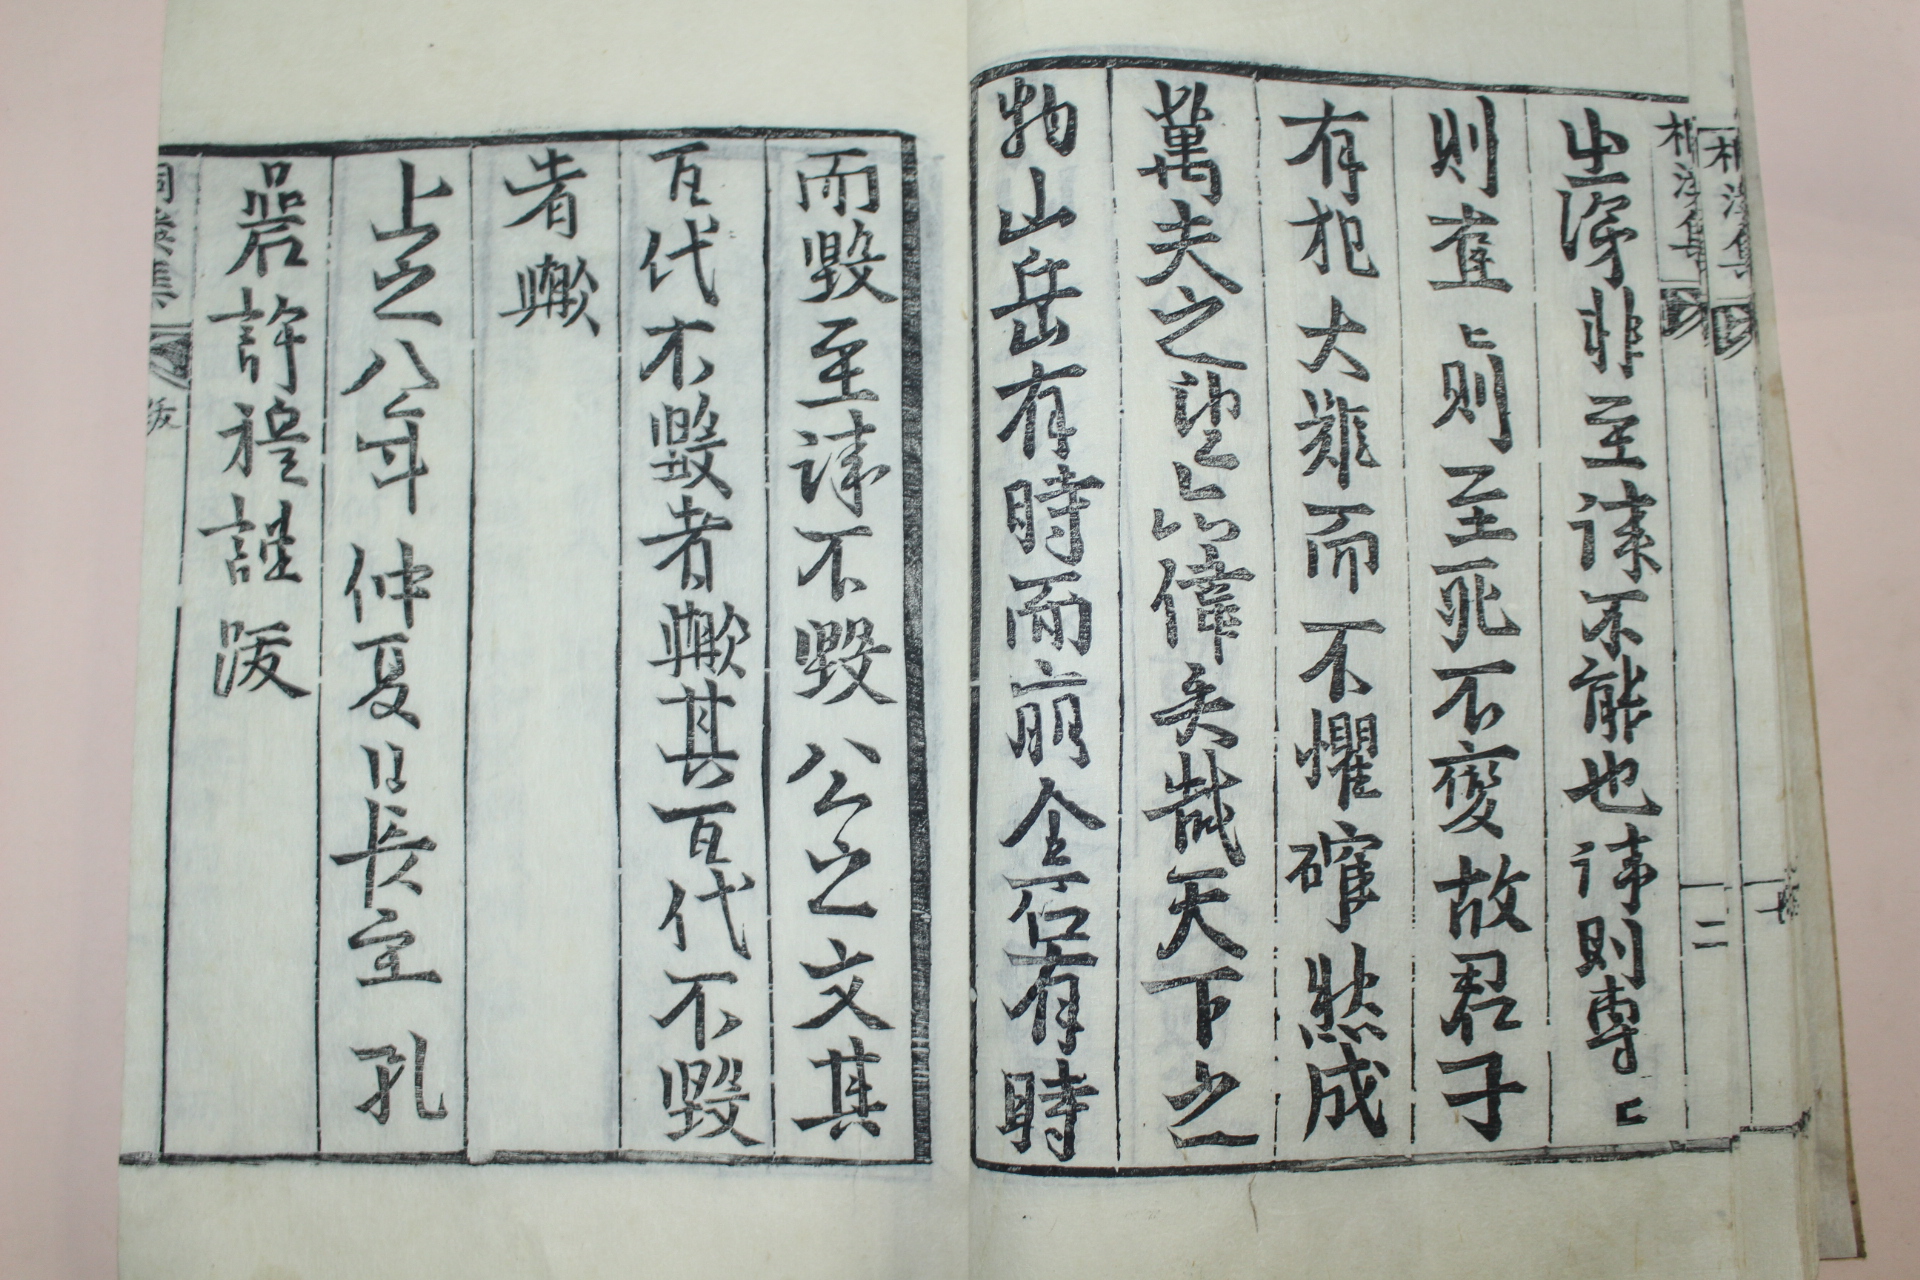 桐溪集
桐溪集 二
出深非至誠不能也誠則専〻
則直〻則至死不變故君子
有犯大難而不懼確然成
萬夫之望亦偉矣哉天下之
物山岳有時而崩金石有時
而毀至誠不毀公之文其
百代不毀者歟其百代不毀
者歟
上之八年仲夏日長至 孔
碞許穆謹跋
桐溪集 跋